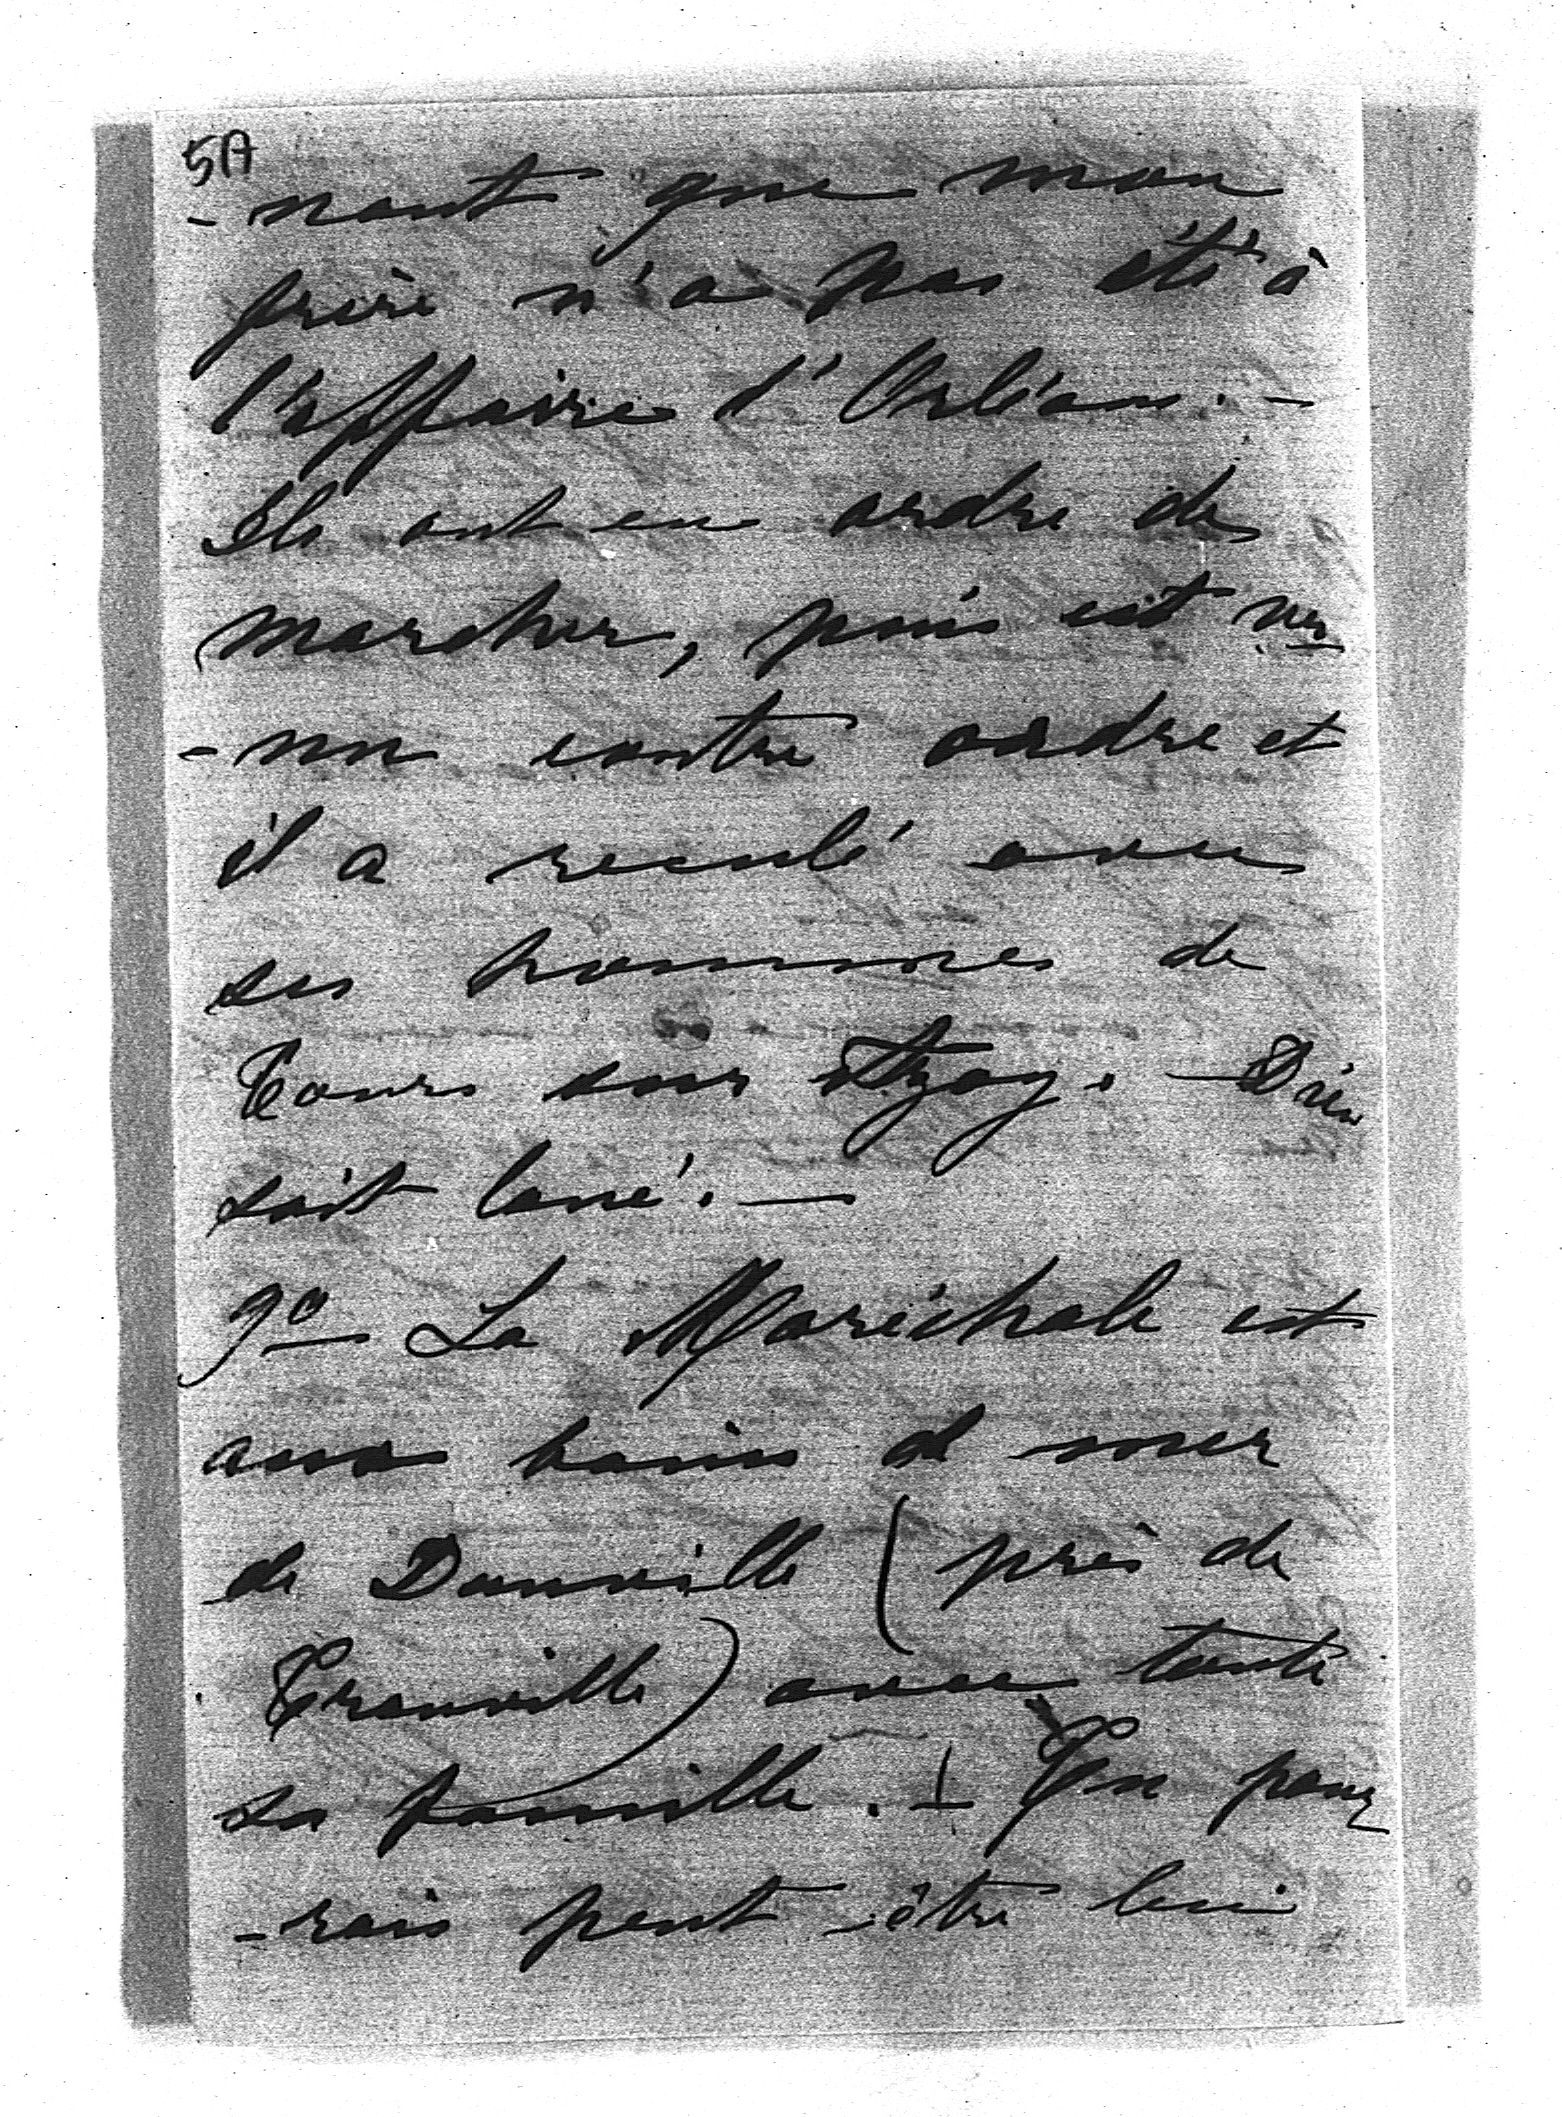 5A
-nant que mon
frère n'a pas été à
l'affaire d'Orléans. -
Ils ont eu ordre de
marcher, puis est ve
-nu contre ordre et
il a reculé avec
ses hommes de
Tours sur Azay. - Dieu
soit loué. -
9º La Maréchale est
aux bains de mer
de Deauville (près de
Trouville) avec toute
sa famille. - Tu pour
-rais peut être lui